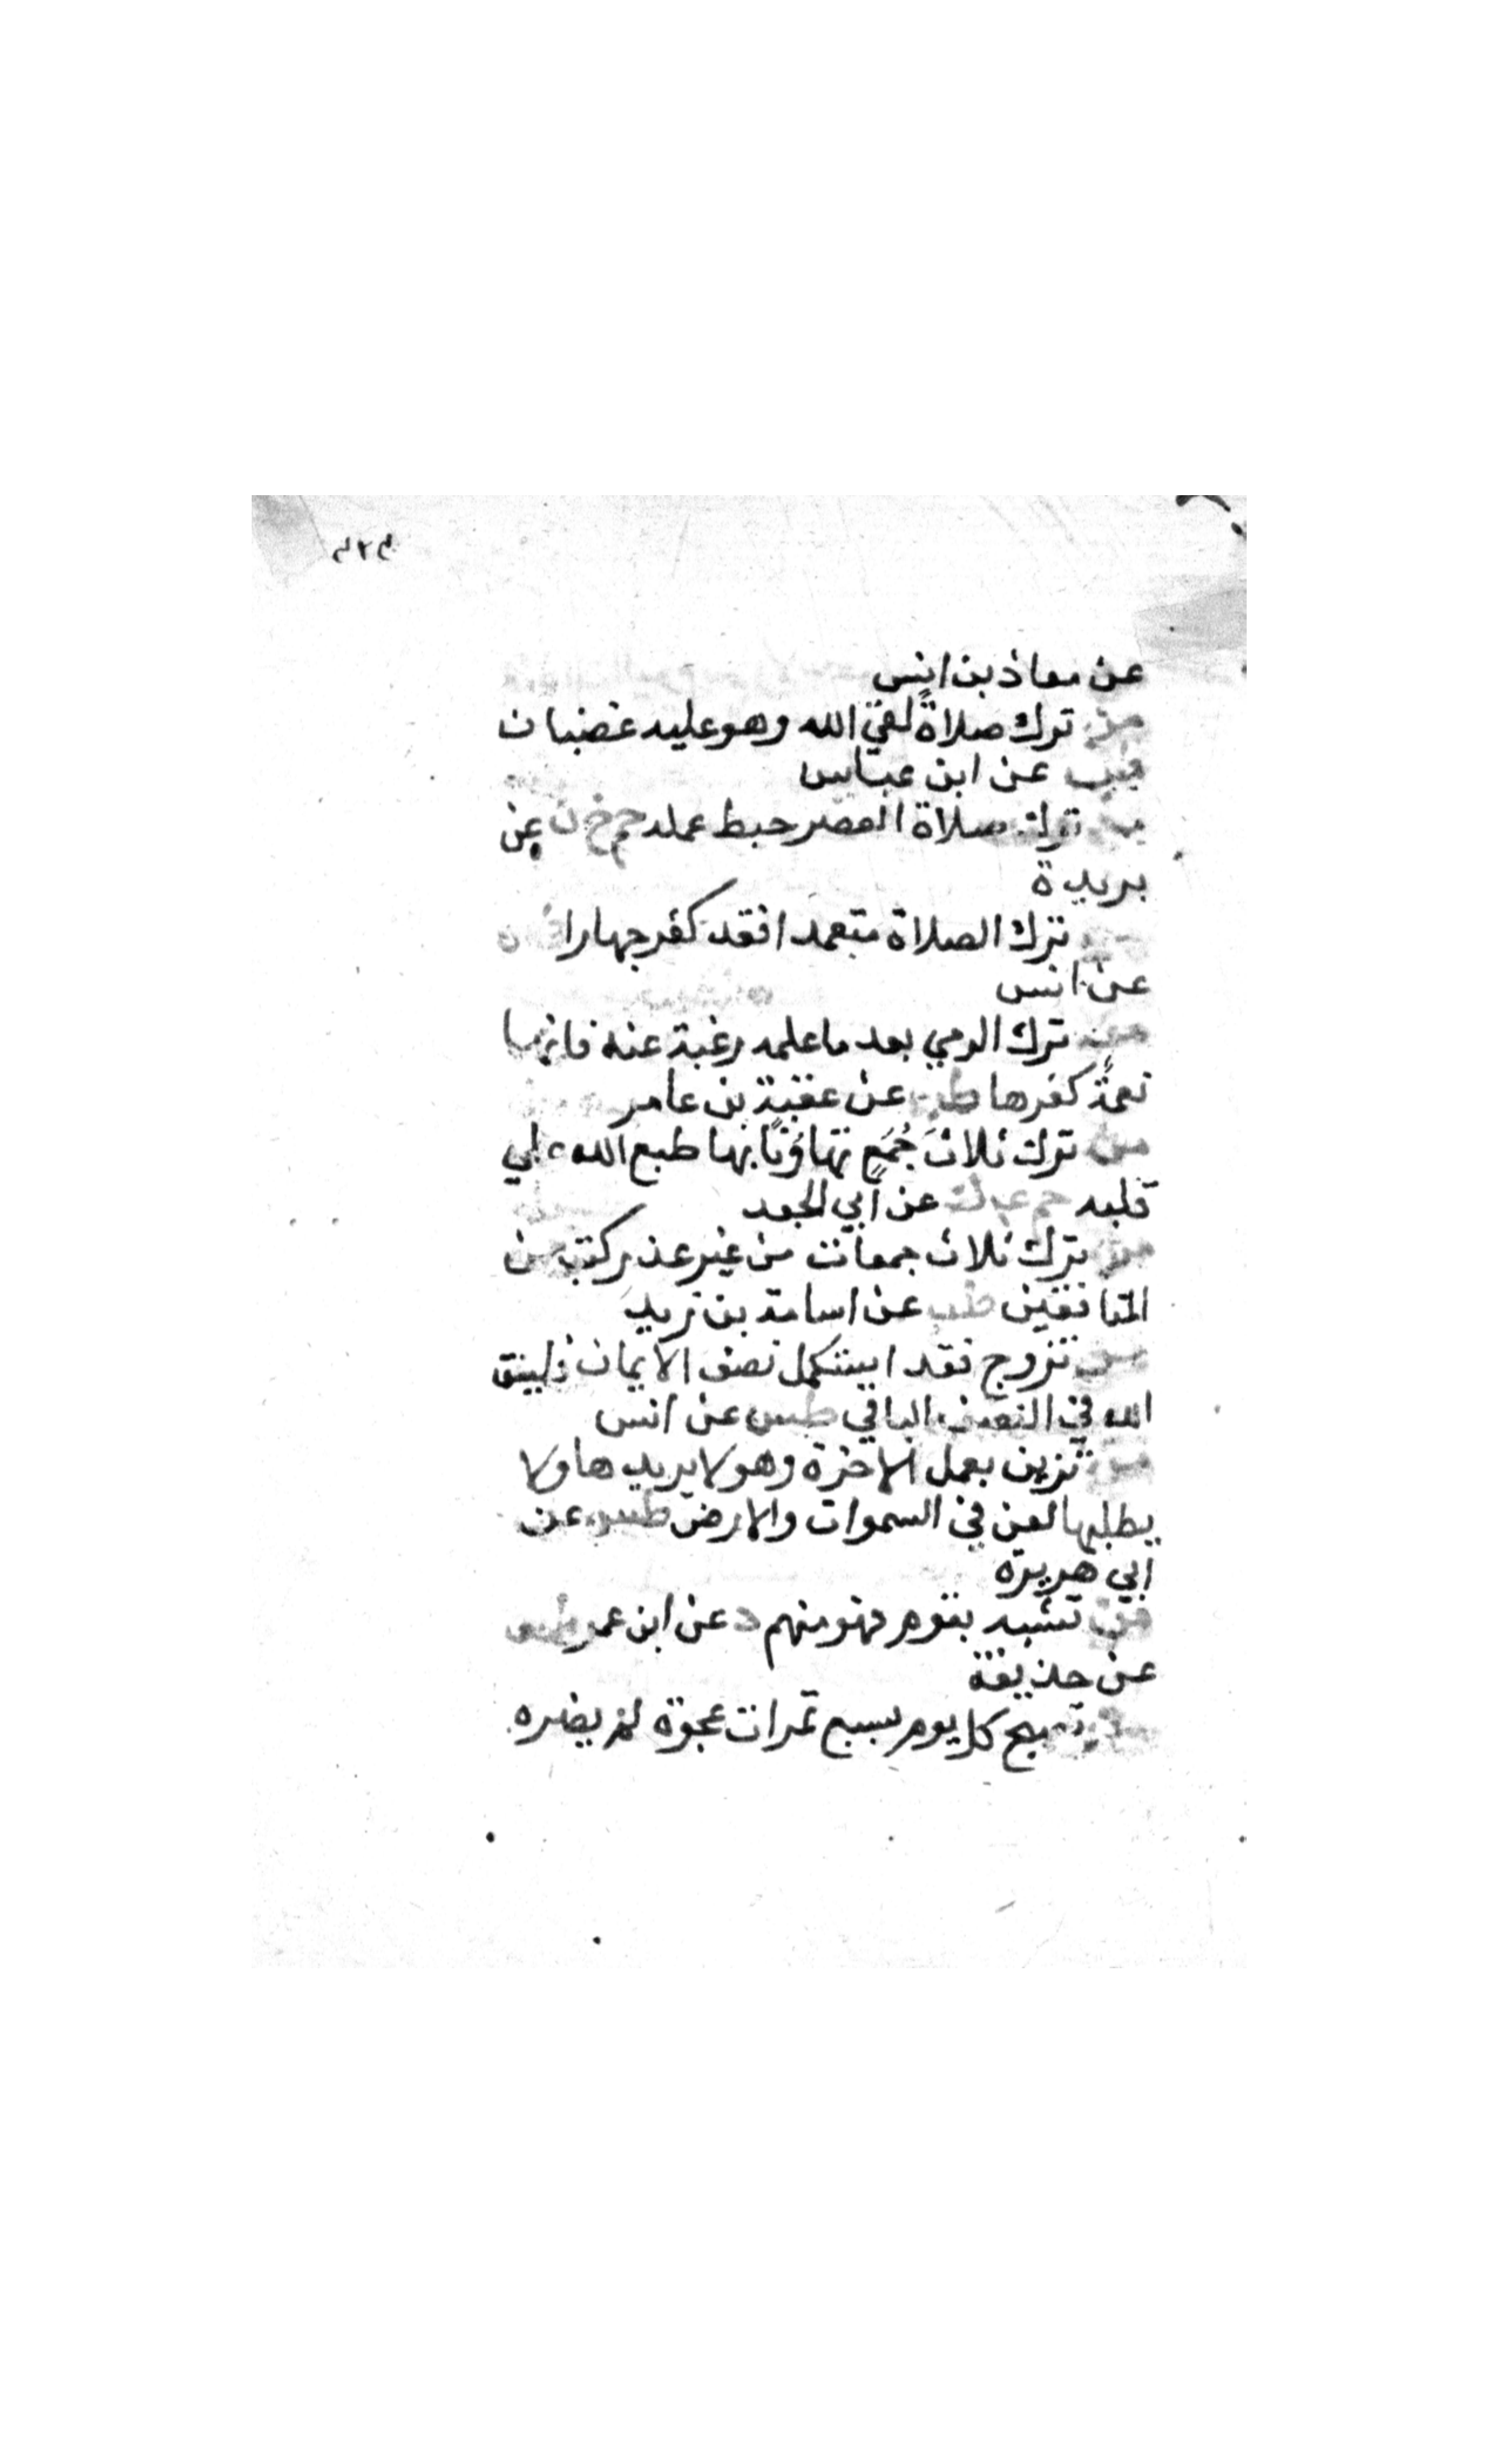 ٣٢٣
عن معاذ بن انس
من ترك صلاةً لقي الله وهو عليه غضبان
طب عن ابن عباس
من ترك صلاة العصر حبط عمله حم خ ن عن
بريدة
ترك الصلاة متعمدا فقد كفر جهارا
عن انس
من ترك الرمي بعد ما علمه رغبة عنه فانها
نعمةٌ كفرها طب عن عقبة بن عامر
من ترك ثلاثَ جُمَعٍ تهاوُنًا بها طبع الله على
قلبه حم ك عن ابي الجعد
من ترك ثلاث جمعات من غير عذر كتب من
المنافقين طب عن اسامة بن زيد
من تزوج فقد استكمل نصف الايمان فليتق
الله في النصف الباقي طس عن انس
من تزين بعمل الاخرة وهو لا يريدها ولا
يطلبها لعن في السموات والارض طس عن
ابي هريرة
من تشبه بقوم فهو منهم د عن ابن عمر طس
عن حذيفة
من تصبح كل يوم بسبع تمرات عجوة لم يضره